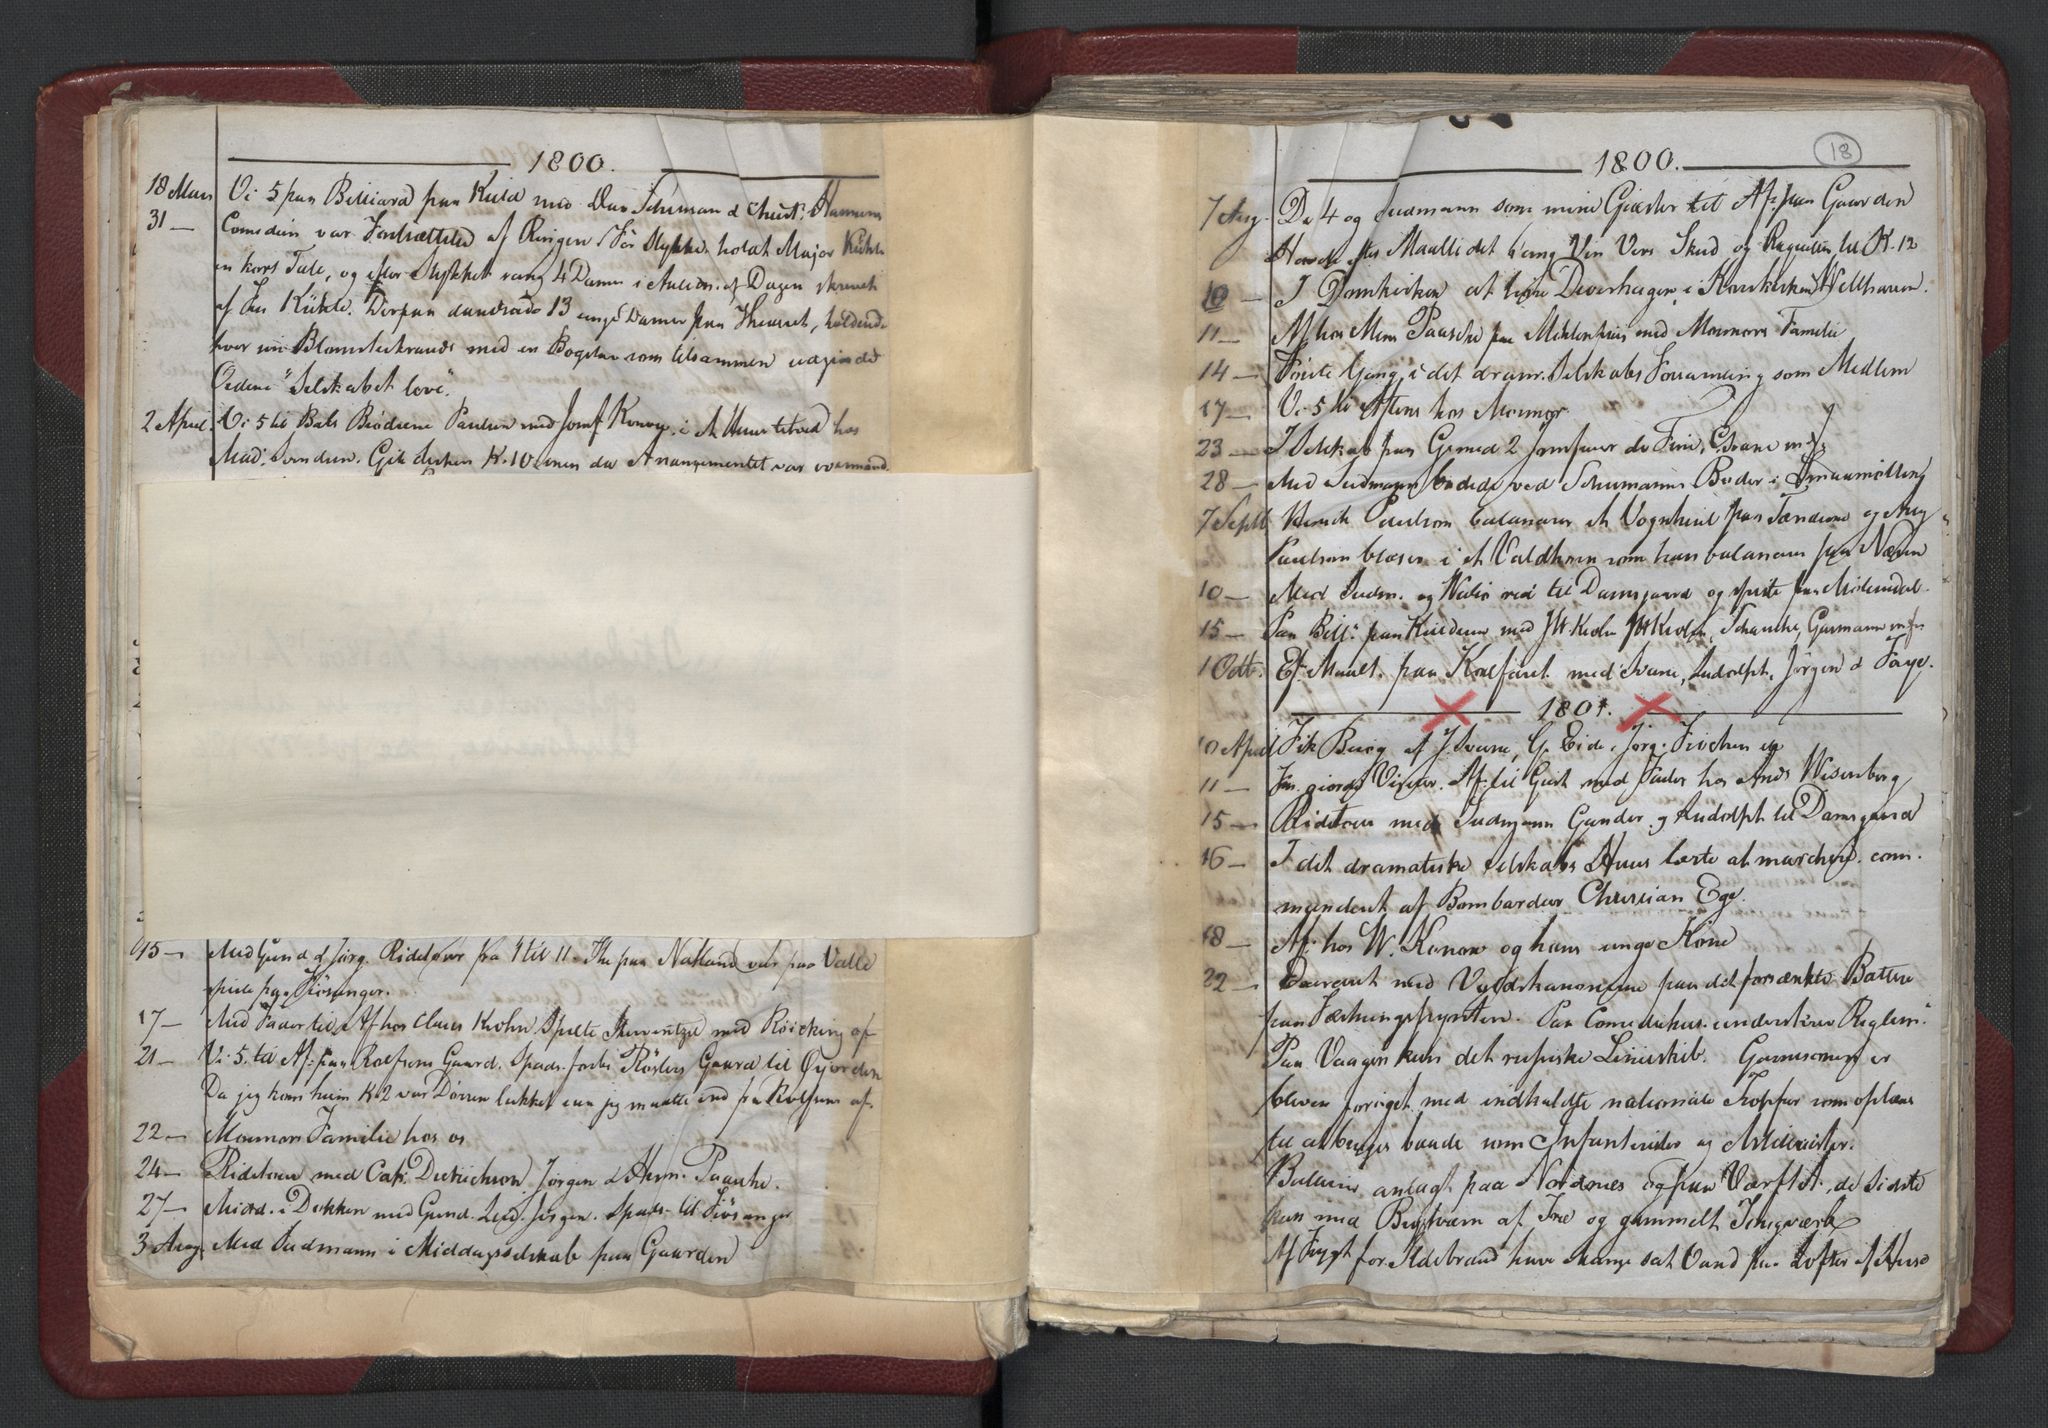 1800.
18 Mars Vi 5 paa Billiard paa Kuld med Dan Schuman & Christ. Hansens
31 — Comedien var Fortsættelse af Ringen. Før Stykket holdt Major Kühle
en kors Tale, og efter Stykket sang 4 Damer i Anledn. af Dagen skrevet
af Jens Kühle. Derpaa dandsede 13 unge Damer paa Theatret, holdende
hver sin Blomsterkrands med en Bogstav som tilsammen udgjorde
Ordene "Selskabet love".
2 April. Vi 5 til Bals Brødrene Paulsen med Josef Konow i et Huus tilved hos
Mad. Svendsen. Gik derhen K. 10 men da Arangementet var overmaad.
15 — Med Gund. & Jørg. Ridetour fra 4 til 11. The paa Natland var paa Valle
spiste paa Fiøsanger.
17 — Med Fader til Af. hos Claus Krohn Spilte Styrvolt med Röicking af
21 — Vi 5. til Af. paa Rolfsens Gaard. Spads. forbi Røslers Gaard til Øyjorden
Da jeg kom hiem K 2 var Døren lukket saa jeg maatte ind fra Rolfsens af.
22 — Mormors Familie hos os
24 — Ridetour med Capt. Dietrichson, Jørgen & Herm. Paasche.
27 — Midd. i Dokken med Gund. Lud. Jørgen. Spads. til Fiösanger
3 Aug. Med Fadmann i Middagsselskab paa Gaarden
18
1800.
7 Aug. De 4 og Sudmann som mine Giæster til Af. paa Gaarden
Havde efter Maaltidet Sang Vin Vers Skud og Raquetter til K. 12
10 — I Domkirken at høre Deverhagen, i Korskirken Wellhaven.
11 — Af hos Mons Paasche paa Mehlenhuus med Mormors Familie
14 — Første Gang i det dram. Selskabs Forsamling som Medlem
17 — Vi 5 til Aftens hos Mormor.
23 — I Selskab paa G. med 2 Jomfruer de Fine, Chrane m. fl.
28 — Med Sudmann badede ved Schumanns Boder i Smaamøllen
7 Septb. Henrik Paulson balancerer et Vognhiul paa Tænderne og Aug.
Paulson blæser i et Valdhorn som han balancerer paa Næsen
10 — Med Sudm. og Wedø red til Damsgaard og spiste paa Melumdal.
15 — Paa Bill. paa Kulden med J W Krohn, Schanche, Garmann m. fl.
1 Octb. Ef. Maalt. paa Kalfaret med Svane, Ludolph, Jørgen & Faye.
1801.
10 April Fik Besøg af J. Svane, G. Eide, Jørg. Frochen etc
11 — Jeg giorde Visiter. Af. til Giæst med Fader hos Ands Wesenberg
15 — Ridetour med Sudmann Gunder. og Ludolph til Damsgaard
16 — I det dramatiske Selskabs Huus lærte at marchere com-
manderet af Bombardeer Christian Ege.
18 — Af. hos W. Konow og hans unge Kone
22 — Exerceret med Vyldskanonerne paa det forsænkte Batterie
paa Fæstningspynten. Paa Comediehus. underskrev Reglem.
Paa Vaagen kun det russiske Linieskib. Garnisonen er
bleven forøget med indkaldte nationale Tropper som oplæres
til at bruges baade som Infanterister og Artillerister.
Batterier anlagt paa Nordnes og paa Værftet, de sidste
kun med Brystværn af Træ og gammelt Tougværk
Af Frygt for Ildebrand have Mange sat Vand paa Lofter af Huse